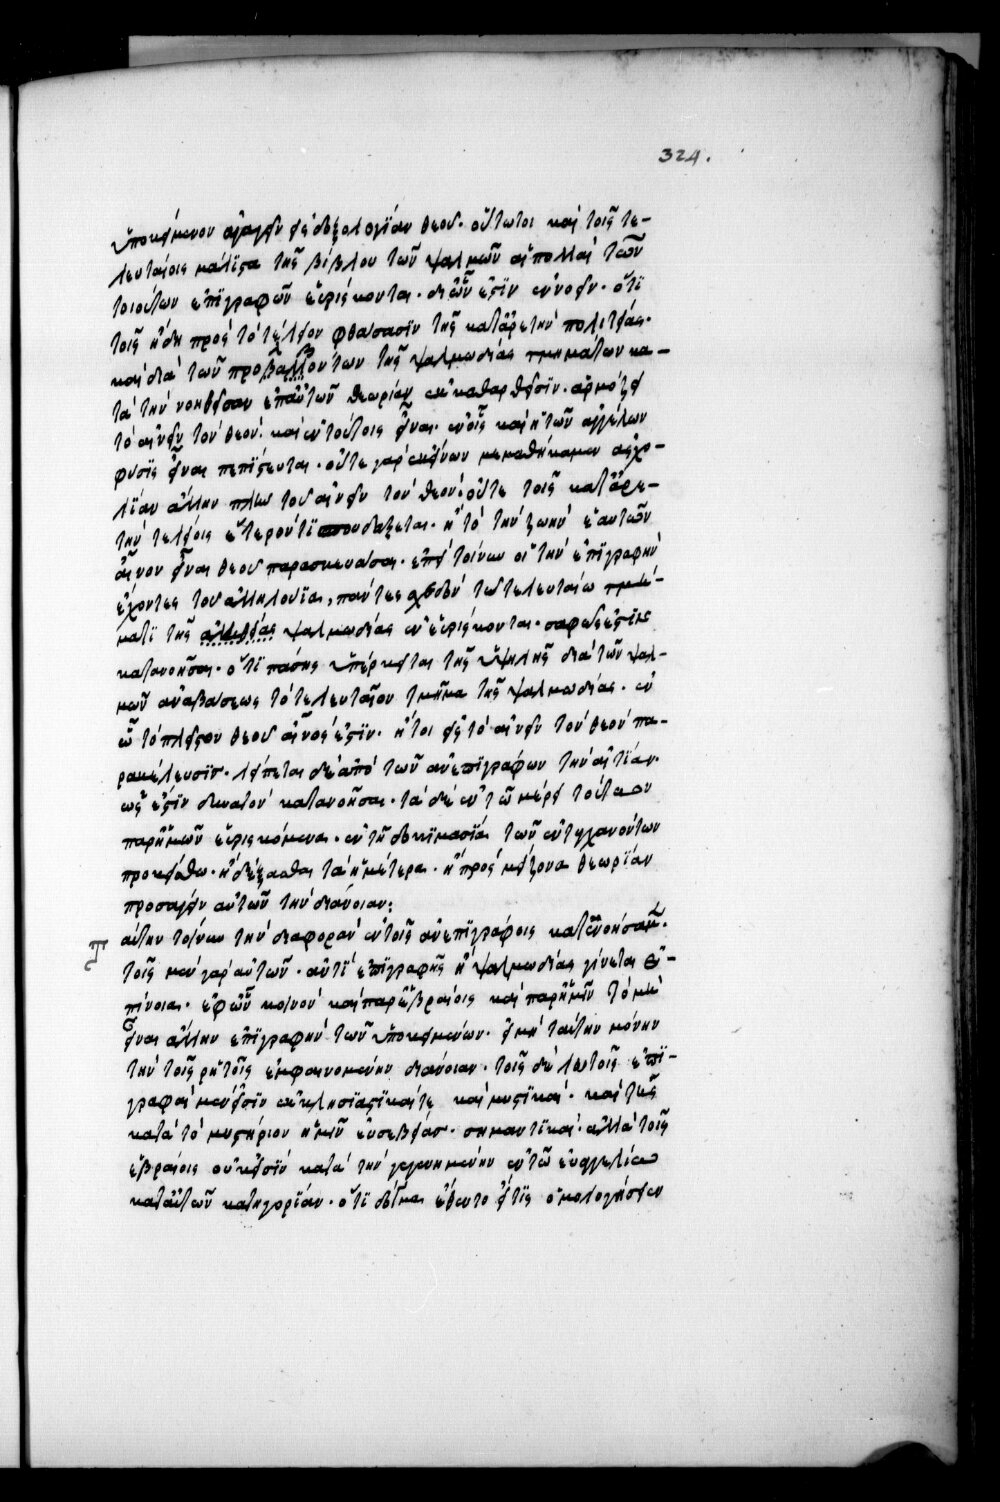 324.
ὑποκείμενον ἄγαγεῖν εἰς δοξολογίαν θεοῦ. οὕτωτοι καὶ τοῖς τε-
λευταίοις μάλιστα τῆς βίβλου τῶν ψαλμῶν αἱ πολλαὶ τῶν
τοιούτων ἐπιγραφῶν εὑρίσκονται. δι ὧν ἐστὶν εὐνοεῖν. ὅτι
τοῖς ἤδη πρὸς τὸ τέλειον φθάσασιν τῆς κατ ἀρετὴν πολιτείας.
καὶ διὰ τῶν προλαβόντων τῆς ψαλμωδίας τμημάτων κα-
τὰ τὴν νοηθεῖσαν ἐπ αὐτῶν θεωρίαν ἐκκαθαρθεῖσιν. ἁρμόζει
τὸ αἰνεῖν τὸν θεὸν. καὶ ἐν τούτοις εἶναι. ἐν οἷς καὶ ἡ τῶν ἀγγέλων
φύσις εἶναι πεπίστευται. οὔτε γὰρ ἐκείνων μεμαθήκαμεν ἀσχο-
λίαν ἄλλην πλὴν τοῦ αἰνεῖν τὸν θεὸν. οὔτε τοῖς κατ ἀρε-
τὴν τελείοις ἕτερόν τι σπουδάζεται. ἢ τὸ τὴν ζωὴν ἑαυτῶν
αἶνον εἶναι θεοῦ παρασκευάσαι. ἐπεὶ τοίνυν οἱ τὴν ἐπιγραφὴν
ἔχοντες τοῦ ἀλληλούϊα, πάντες σχεδὸν τῷ τελευταίω τμή-
ματι τῆς ψαλμωδίας ἐνευρίσκονται. σαφῶς ἐστὶν
κατανοῆσαι. ὅτι πάσης ὑπέρκειται τῆς ὑψηλῆς διὰ τῶν ψαλ-
μῶν ἀναβάσεως τὸ τελευταῖον τμῆμα τῆς ψαλμωδίας. ἐν
ᾧ τὸ πλεῖστον θεοῦ αἶνος ἐστὶν. ἤτοι εἰς τὸ αἰνεῖν τὸν θεὸν πα-
ρακέλευσις. λείπεται δὲ ἀπὸ τῶν ἀνεπιγράφων τὴν αἰτίαν.
ὡς ἐστὶν δυνατὸν κατανοῆσαι. τὰ δὲ ἐν τῷ μέρει τούτω
παρ ἡμῶν εὑρισκόμενα. ἐν τῇ δοκιμασία τῶν ἐντυγχανόντων
προκείσθω. ἢ δέξασθαι τὰ ἡμέτερα. ἢ πρὸς μείζονα θεωρίαν
προσαγεῖν αὐτῶν τὴν διάνοιαν:
αὕτην τοίνυν τὴν διαφορὰν ἐν τοῖς ἀνεπιγράφοις κατενοήσαμεν.
τοῖς μὲν γὰρ αὐτῶν. ἀντὶ ἐπιγραφῆς ἡ ψαλμωδίας γίνεται ἐ-
πίνοια. ἐφ ὧν κοινὸν καὶ παρ ἑβραίοις καὶ παρ ἡμῖν τὸ μὴ
εἶναι ἄλλην ἐπιγραφὴν τῶν ὑποκειμένων. εἰ μὴ ταύτην μόνην
τὴν τοῖς ῥητοῖς ἐμφαινομένην διάνοιαν. τοῖς δὲ λοιποῖς ἐπι-
γραφαὶ μὲν εἰσὶν ἐκκλησιαστικαί τε καὶ μυστικαὶ. καὶ τῆς
κατὰ τὸ μυστήριον ἡμῶν εὐσεβείας. σημαντικαὶ. ἀλλὰ τοῖς
ἑβραίοις οὐκ εἰσὶν κατὰ τὴν γεγενημένην ἐν τῷ εὐαγγελίω
κατ αὐτῶν κατηγορίαν. ὅτι δόγμα ἔθεντο εἴ τις ὁμολογήσειεν